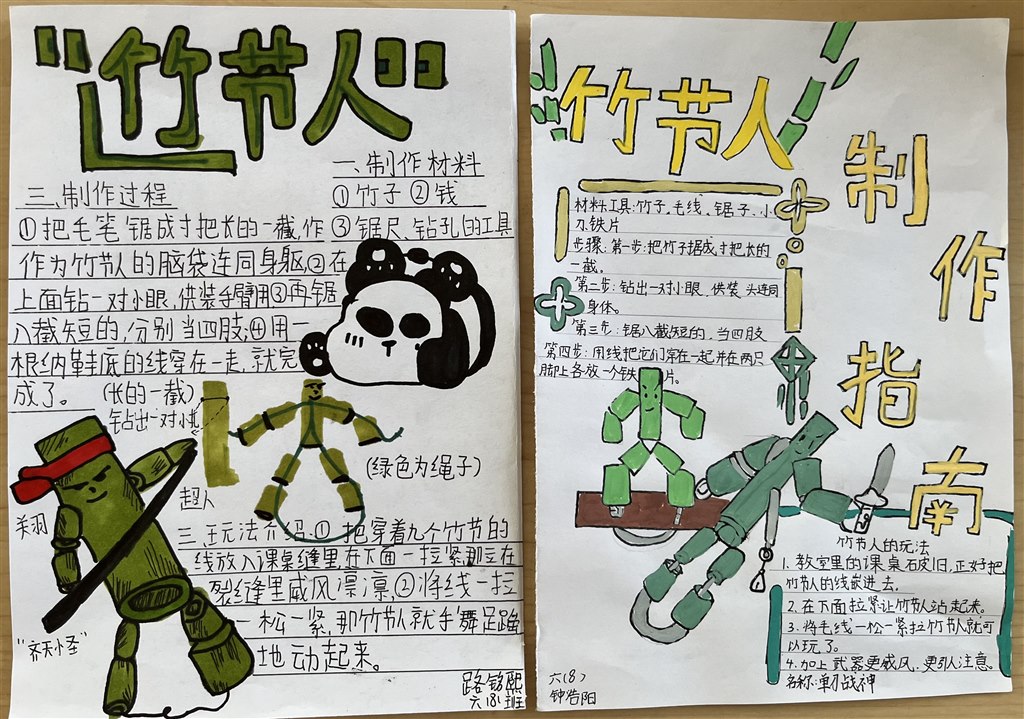 “造竹节人”
一、制作材料
①竹子②钱
③锯尺、钻孔的工具
三、制作过程
①把毛笔锯成寸把长的一截,作
作为竹节人的脑袋连同身躯,②在
上面钻一对小眼,供装手臂用③再锯
八截短的,分别当四肢;④用一
根纳鞋底的线穿在一走,就完
成了。
(长的一截)
钻出一对小孔
(绿色为绳子)
超人
关羽
“齐天小圣”
三、玩法介绍:①把穿着九个竹节的
线放入课桌缝里,在下面一拉紧,那立在
裂缝里威风凛凛②将线一拉
一松一紧,那竹节人就手舞足蹈
地动起来。
路铭熙
六(8)班
竹节人
制作指南
材料工具:竹子,毛线、锯子、小
刀、铁片
步骤:第一步:把竹子据成寸把长的
一截。
第二步:钻出一对小眼,供装头连同
身体。
第三步:锯八截短的,当四肢
第四步:用线把它们穿在一起并在两只
脚上各放一个铁片。
竹节人的玩法
1.教室里的课桌破旧,正好把
竹节人的线嵌进去,
2.在下面拉紧让竹节人站起来。
3.将毛线一松一紧拉竹节人就可
以玩了。
4.加上武器更威风,更引人注意。
名称:单刀战神
六(8)
钟浩阳